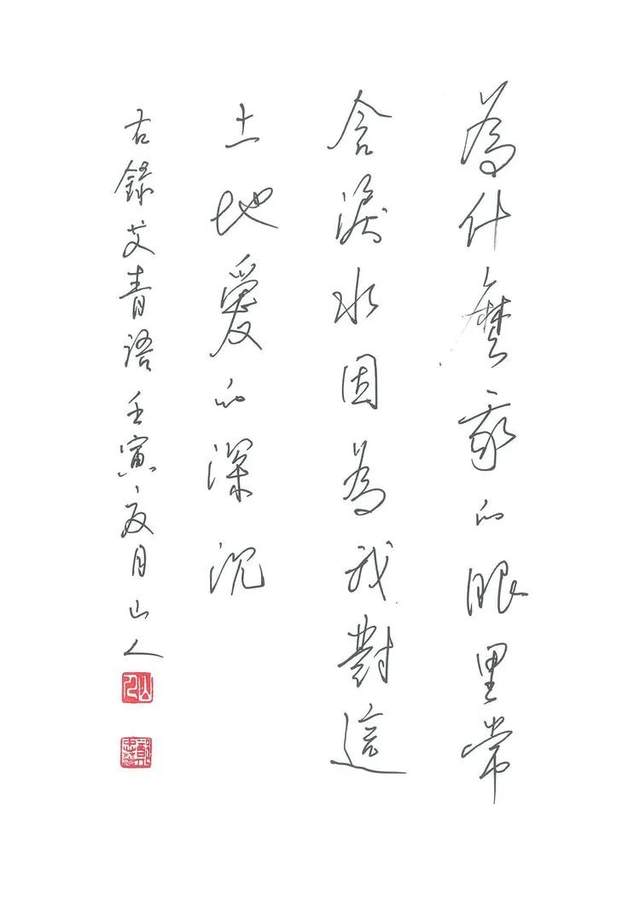 為什麼我的眼里常
含淚水因為我對這
土地愛的深沉
右錄艾青語壬寅夏月山人
山人